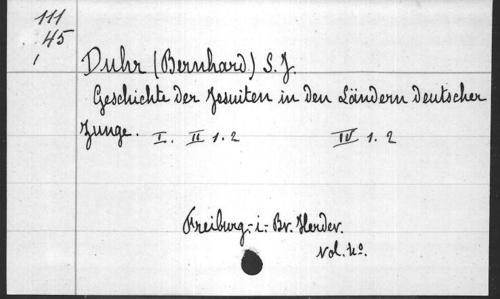 111
45
1
Duhr (Bernhard) S. J.
Geschichte der Jesuiten in den Ländern deutscher
Zunge. I. II 1. 2 IV 1. 2
Freiburg-i-Br. Herder.
vol. 4º.